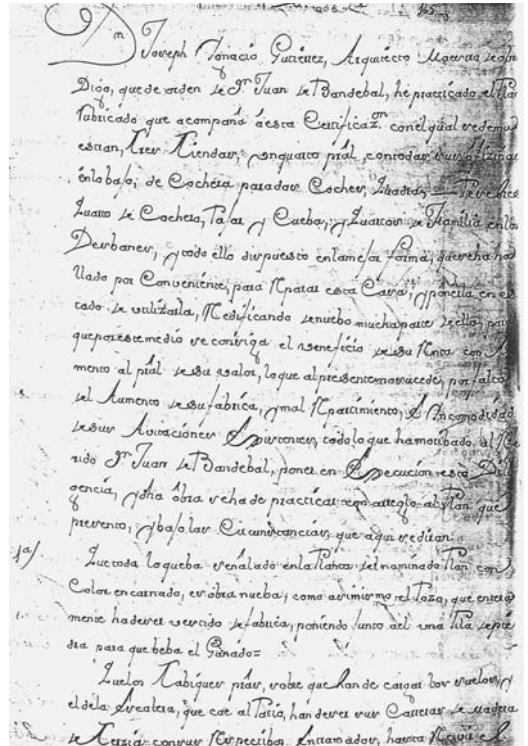 Dn Joseph Ygnacio Gutierrez, Arquitecto Maestro de obr
Digo, que de orden de Dn Juan de Bandebal, hè practicado el Plan
fabricado que acompaña à esta Certificazon. con el qual se demu
estran, tres tiendas, y un quarto pràl, con todas sus ofizinas
en lo bajo, de Cochera para dos Coches, Quadras,
Quarto de Cochero, Pajar y Cueba, y Quartos de Familia en los
Desbanes, y todo ello dispuesto en la mejor forma, que se ha ha
llado por Conveniente, para Reparar esta Casa, y ponerla en es
tado de utilizarla, Redificando de nuebo mucha parte de ella, para
que por este medio se consiga el veneficio de su Renta con Au
mento al pràl de su valor, lo que al presente no sucede, por falta
del Aumento de su fabrica, y mal Repartimiento, è Yncomodidad
de sus Avitaciones Existentes, todo lo que ha motibado al Re
rido Dn Juan de Bandebal, poner en Execucion esta Dili
gencia, y dha òbra se ha de practicar con arreglo al Plan que
presento, y bajo las Circunstancias, que aqui se ditan.
1a/ Que toda lo que ba señalado en la Planta del nominado Plan con
Color encarnado, es òbra nueba, como asimismo el Pozo, que entera
mente ha de ser vestido de fabrica, poniendo Junto à èl una Pila de pie
dra para que beba el Ganado=
Que los Tabiques pràs, sobre que han de cargar los suelos, y
el de la Escalera, que cae al Patio, han de ser sus Carreras de Madera
de Terzia con sus Respectibos Entramados, hasta Recivir el